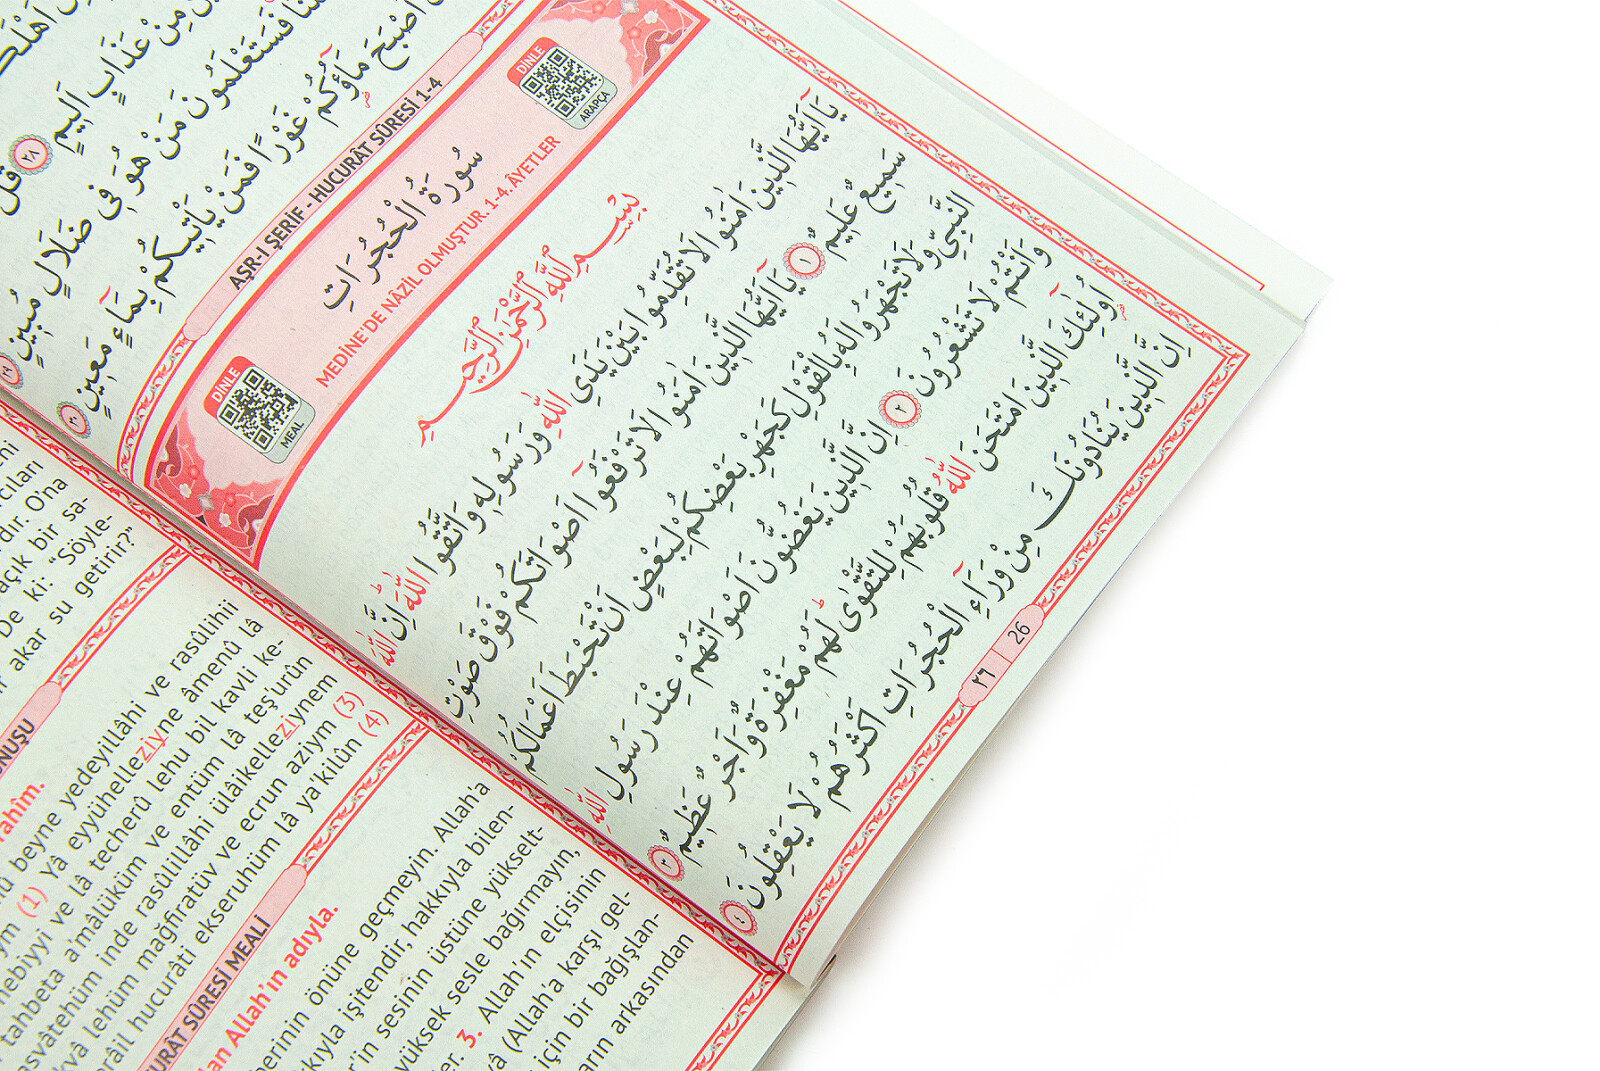 اَهْلَكَ
مِنْ عَذَابٍ اَلِيمٍ ﴿٢٨﴾ قُلْ
فَسَتَعْلَمُونَ مَنْ هُوَ فِى ضَلَالٍ مُبِينٍ ﴿٢٩﴾
اَصْبَحَ مَٓاؤُكُمْ غَوْرًا فَمَنْ يَأْتِيكُمْ بِمَٓاءٍ مَعِينٍ ﴿٣٠﴾
AŞR-I ŞERİF - HUCURÂT SÛRESİ 1-4
DİNLE
ARAPÇA
سُورَةُ الْحُجُرَاتِ
MEDİNE'DE NÂZİL OLMUŞTUR. 1-4. ÂYETLER
DİNLE
MEAL
بِسْمِ اللّٰهِ الرَّحْمٰنِ الرَّحِيمِ
يَٓا اَيُّهَا الَّذِينَ اٰمَنُوا لَا تُقَدِّمُوا بَيْنَ يَدَىِ اللّٰهِ وَرَسُولِهِ وَاتَّقُوا اللّٰهَ اِنَّ اللّٰهَ
سَمِيعٌ عَلِيمٌ ﴿١﴾ يَٓا اَيُّهَا الَّذِينَ اٰمَنُوا لَا تَرْفَعُٓوا اَصْوَاتَكُمْ فَوْقَ صَوْتِ
النَّبِىِّ وَلَا تَجْهَرُوا لَهُ بِالْقَوْلِ كَجَهْرِ بَعْضِكُمْ لِبَعْضٍ اَنْ تَحْبَطَ اَعْمَالُكُمْ
وَاَنْتُمْ لَا تَشْعُرُونَ ﴿٢﴾ اِنَّ الَّذِينَ يَغُضُّونَ اَصْوَاتَهُمْ عِنْدَ رَسُولِ اللّٰهِ
اُو۬لٰٓئِكَ الَّذِينَ امْتَحَنَ اللّٰهُ قُلُوبَهُمْ لِلتَّقْوٰى لَهُمْ مَغْفِرَةٌ وَاَجْرٌ عَظِيمٌ ﴿٣﴾
اِنَّ الَّذِينَ يُنَادُونَكَ مِنْ وَرَٓاءِ الْحُجُرَاتِ اَكْثَرُهُمْ لَا يَعْقِلُونَ ﴿٤﴾
٢٦ 26
cıları
dır. O'na
açık bir sa-
De ki: “Söyle-
akar su getirir?”
NUŞU
rahîm.
beyne yedeyillâhi ve rasûlihii
(1) Yâ eyyühelleziyne âmenû lâ
nebiyyi ve lâ techerû lehu bil kavli ke-
tahbeta a'mâlüküm ve entüm lâ teş'urûn
asvâtehüm inde rasûlillâhi ülâikelleziynem
kvâ lehüm mağfiratüv ve ecrun aziym (3)
râil hucurâti ekseruhüm lâ ya'kilûn (4)
URÂT SÛRESİ MEALİ
lan Allah'ın adıyla.
erinin önüne geçmeyin. Allah'a
kkıyla işitendir, hakkıyla bilen-
r'in sesinin üstüne yükselt-
yüksek sesle bağırmayın,
er. 3. Allah'ın elçisinin
vâ (Allah'a karşı gel-
için bir bağışlan-
arın arkasından